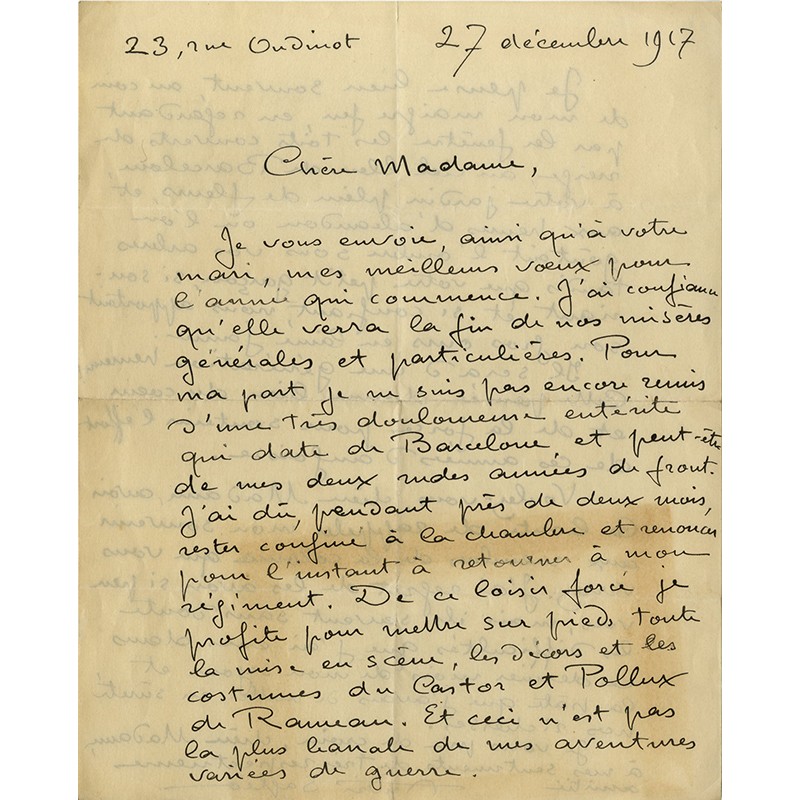 23, rue Oudinot 27 décembre 1917
Chère Madame,
Je vous envoie, ainsi qu'à votre
mari, mes meilleurs vœux pour
l'année qui commence. J'ai confiance
qu'elle verra la fin de nos misères
générales et particulières. Pour
ma part je ne suis pas encore remis
d'une très douloureuse entérite
qui date de Barcelone et peut-être
de mes deux rudes années de front.
J'ai dû, pendant près de deux mois,
rester confiné à la chambre et renoncer
pour l'instant à retourner à mon
régiment. De ce loisir forcé je
profite pour mettre sur pieds toute
la mise en scène, les décors et les
costumes du Castor et Pollux
de Rameau. Et ceci n'est pas
la plus banale de mes aventures
variées de guerre.